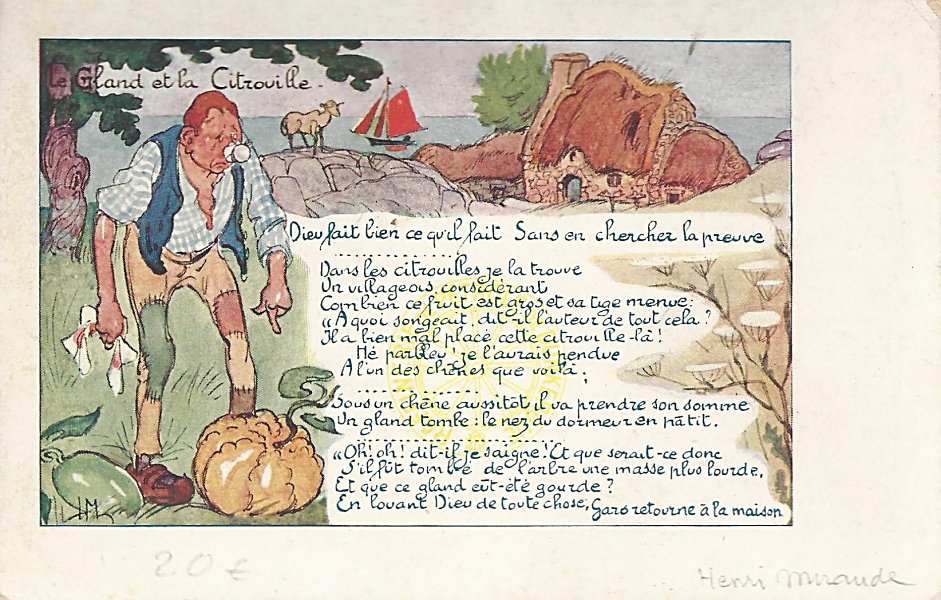 Le Gland et la Citrouille.
Dieu fait bien ce qu'il fait Sans en chercher la preuve
..............
Dans les citrouilles je la trouve
Un villageois, considérant
Combien ce fruit est gros et sa tige menue:
"A quoi songeait, dit-il l'auteur de tout cela?
Il a bien mal placé cette citrouille-là!
Hé parbleu! je l'aurais pendue
A l'un des chênes que voilà;
..............
Sous un chêne aussitôt il va prendre son somme
Un gland tombe: le nez du dormeur en pâtit.
..............
"Oh! oh! dit-il je saigne! Et que serait-ce donc
S'il fût tombé de l'arbre une masse plus lourde,
Et que ce gland eût-été gourde?
En louant Dieu de toute chose, Garo retourne à la maison
HM
20 €
Henri Miraude